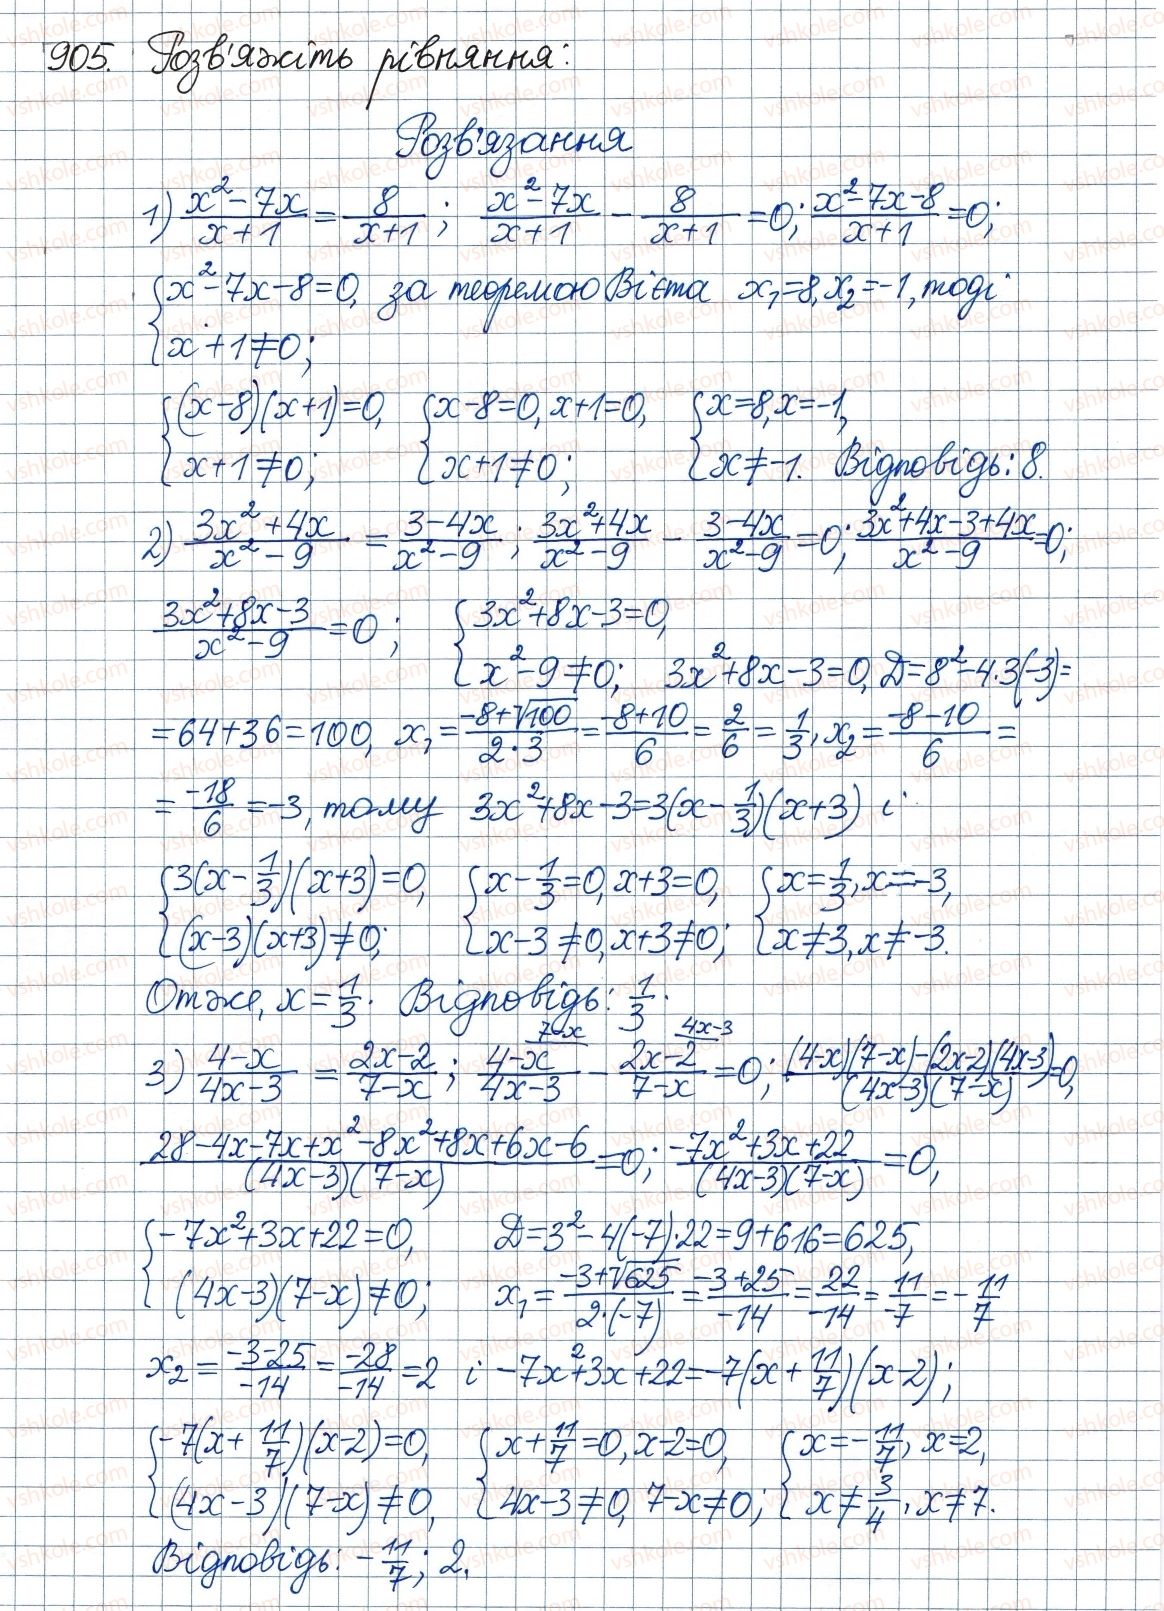 905. Розв'яжіть рівняння:
Розв'язання
1) (x²-7x)/(x+1) = 8/(x+1); (x²-7x)/(x+1) - 8/(x+1) = 0; (x²-7x-8)/(x+1) = 0;
{x²-7x-8=0, за теоремою Вієта x₁=8, x₂=-1, тоді
x+1≠0;
{(x-8)(x+1)=0, {x-8=0, x+1=0, {x=8, x=-1,
x+1≠0; x+1≠0; x≠-1. Відповідь: 8.
2) (3x²+4x)/(x²-9) = (3-4x)/(x²-9); (3x²+4x)/(x²-9) - (3-4x)/(x²-9) = 0; (3x²+4x-3+4x)/(x²-9) = 0;
(3x²+8x-3)/(x²-9) = 0; {3x²+8x-3=0,
x²-9≠0; 3x²+8x-3=0, D=8²-4·3(-3)=
=64+36=100, x₁ = (-8+√100)/(2·3) = (-8+10)/6 = 2/6 = 1/3, x₂ = (-8-10)/6 =
= -18/6 = -3, тому 3x²+8x-3=3(x-1/3)(x+3) і
{3(x-1/3)(x+3)=0, {x-1/3=0, x+3=0, {x=1/3, x=-3,
(x-3)(x+3)≠0; x-3≠0, x+3≠0; x≠3, x≠-3.
Отже, x=1/3. Відповідь: 1/3.
3) (4-x)/(4x-3) = (2x-2)/(7-x); (4-x)/(4x-3) ^(7-x) - (2x-2)/(7-x) ^(4x-3) = 0; ((4-x)(7-x)-(2x-2)(4x-3))/((4x-3)(7-x)) = 0,
(28-4x-7x+x²-8x²+8x+6x-6)/((4x-3)(7-x)) = 0; (-7x²+3x+22)/((4x-3)(7-x)) = 0,
{-7x²+3x+22=0, D=3²-4(-7)·22=9+616=625,
(4x-3)(7-x)≠0; x₁ = (-3+√625)/(2·(-7)) = (-3+25)/(-14) = 22/(-14) = 11/(-7) = -11/7
x₂ = (-3-25)/(-14) = (-28)/(-14) = 2 і -7x²+3x+22=-7(x+11/7)(x-2);
{-7(x+11/7)(x-2)=0, {x+11/7=0, x-2=0, {x=-11/7, x=2,
(4x-3)(7-x)≠0, 4x-3≠0, 7-x≠0; x≠3/4, x≠7.
Відповідь: -11/7; 2.